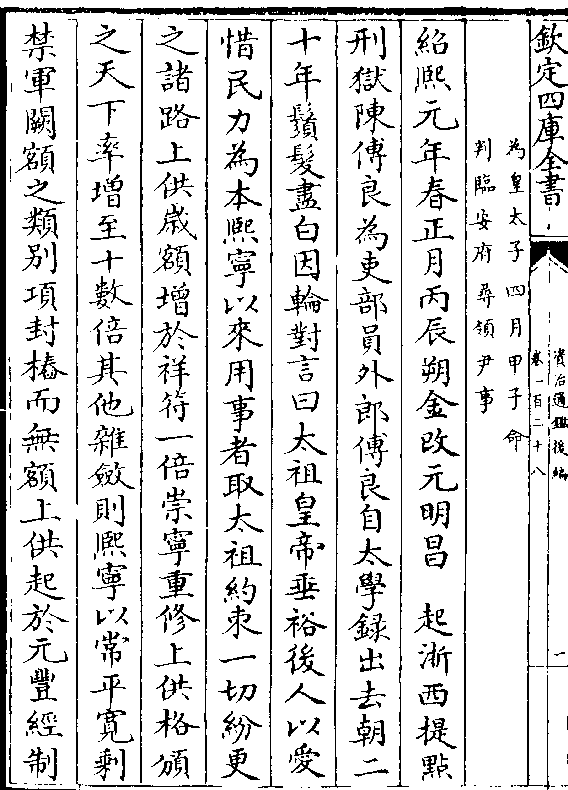 欽定四庫全書
資治通鑑後編
卷一百二十八
一
為皇太子四月甲子命
判臨安府尋領尹事
紹熙元年春正月丙辰朔金改元明昌　起浙西提點
刑獄陳傅良為吏部員外郎傅良自太學錄出去朝二
十年鬚髮盡白因輪對言曰太祖皇帝垂裕後人以愛
惜民力為本熙寧以來用事者取太祖約束一切紛更
之諸路上供歲額增於祥符一倍崇寧重修上供格頒
之天下率增至十數倍其他雜斂則熙寧以常平寬剩
禁軍闕額之類別項封樁而無額上供起於元豐經制